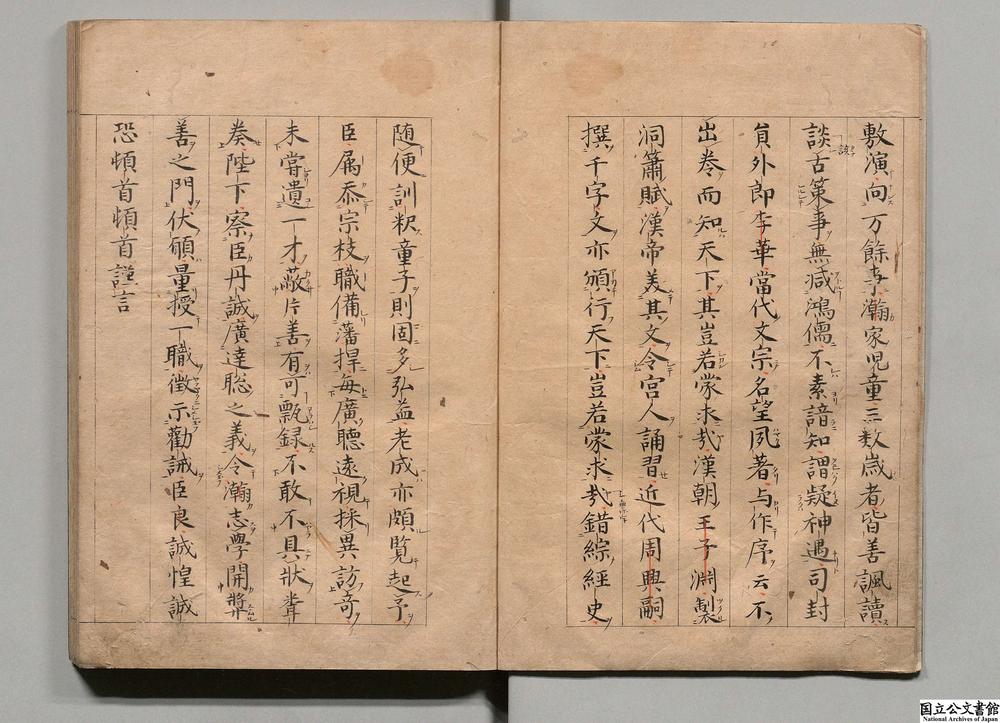 敷演向万餘事瀚家児童三数歳者皆善諷讀
談古策事無減鴻儒不素諳知謂疑神遇司封
貟外郎李華當代文宗名望夙著与作序云不
出巻而知天下其豈若蒙求哉漢朝王子淵製
洞簫賦漢帝美其文令宮人誦習近代周興嗣
撰千字文亦頒行天下豈若蒙求哉錯綜經史
随便訓釈童子則固多弘益老成亦頗覧起予
臣属忝宗枝職備藩捍每廣聽遠視採異訪奇
未嘗遺一才蔽片善有可甄録不敢不具状聞
奏陛下察臣丹誠廣達聡之義令瀚志學開奨
善之門伏願量授一職微示勸誡臣良誠惶誠
恐頓首頓首謹言
国立公文書館
National Archives of Japan